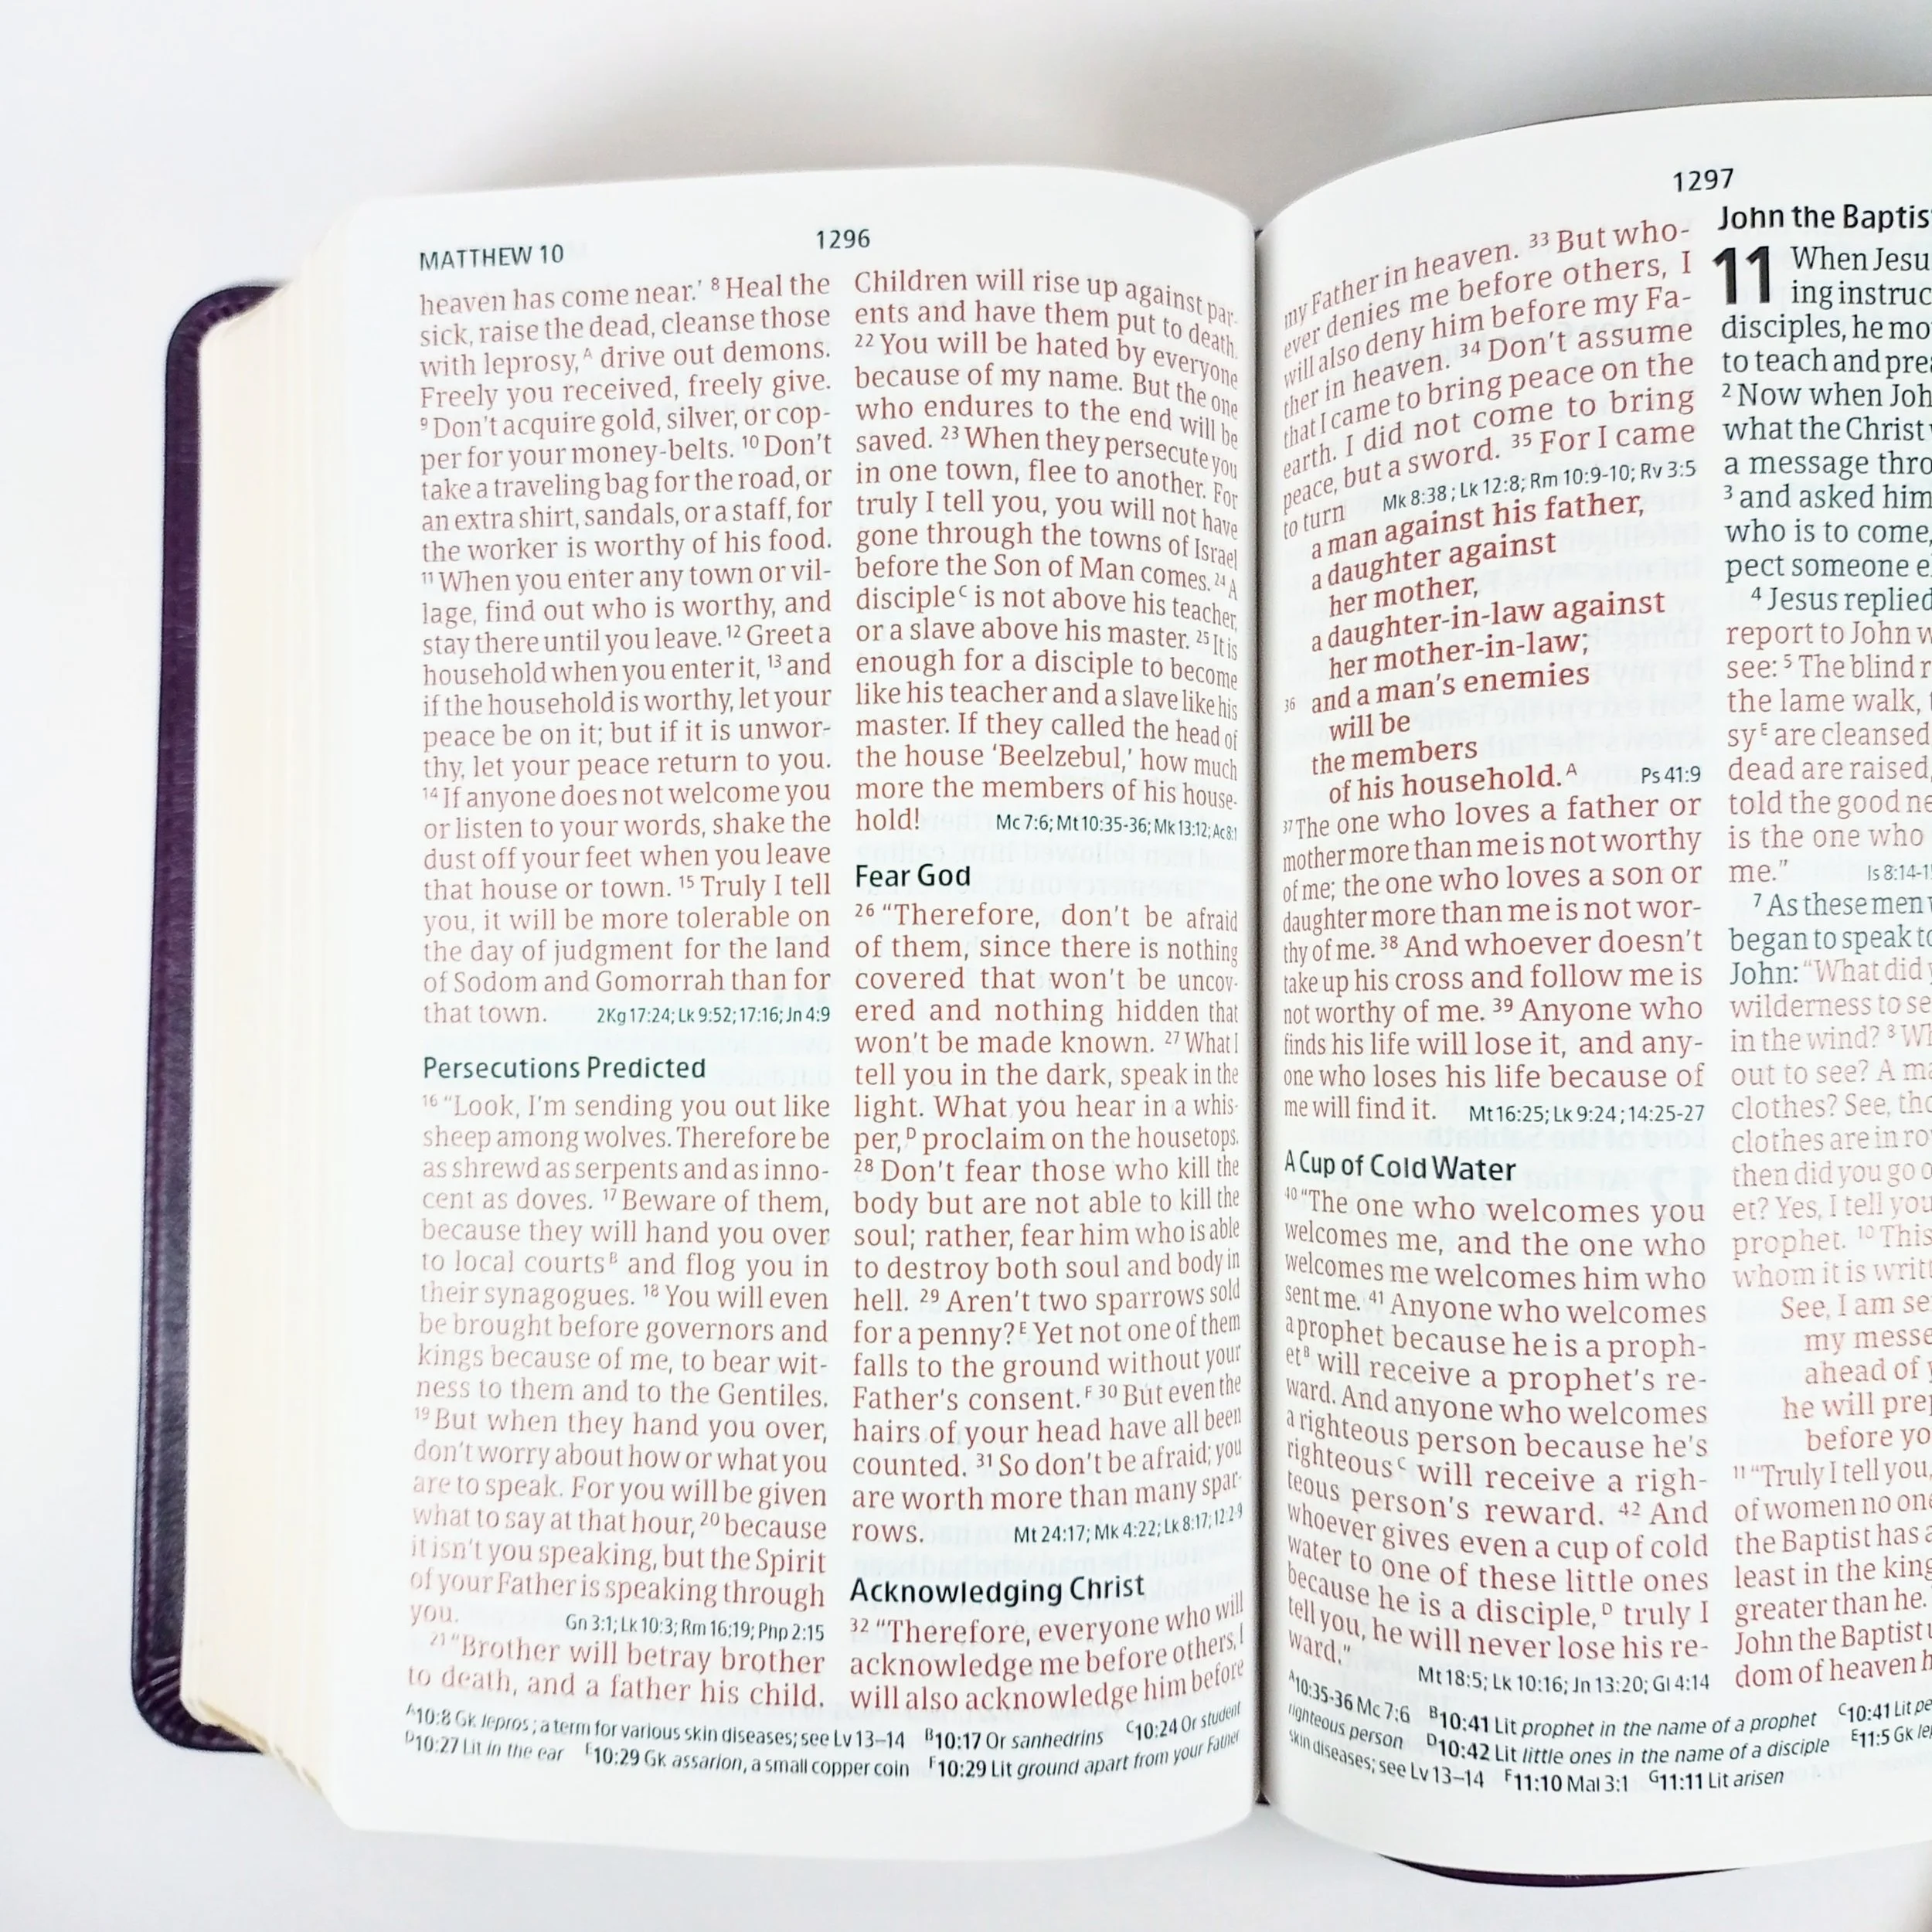 MATTHEW 10
1296
heaven has come near.' 8 Heal the
sick, raise the dead, cleanse those
with leprosy,A drive out demons.
Freely you received, freely give.
9 Don't acquire gold, silver, or cop-
per for your money-belts. 10 Don't
take a traveling bag for the road, or
an extra shirt, sandals, or a staff, for
the worker is worthy of his food.
11 When you enter any town or vil-
lage, find out who is worthy, and
stay there until you leave. 12 Greet a
household when you enter it, 13 and
if the household is worthy, let your
peace be on it; but if it is unwor-
thy, let your peace return to you.
14 If anyone does not welcome you
or listen to your words, shake the
dust off your feet when you leave
that house or town. 15 Truly I tell
you, it will be more tolerable on
the day of judgment for the land
of Sodom and Gomorrah than for
that town. 2Kg 17:24; Lk 9:52; 17:16; Jn 4:9
Persecutions Predicted
16 “Look, I'm sending you out like
sheep among wolves. Therefore be
as shrewd as serpents and as inno-
cent as doves. 17 Beware of them,
because they will hand you over
to local courtsB and flog you in
their synagogues. 18 You will even
be brought before governors and
kings because of me, to bear wit-
ness to them and to the Gentiles.
19 But when they hand you over,
don't worry about how or what you
are to speak. For you will be given
what to say at that hour, 20 because
it isn't you speaking, but the Spirit
of your Father is speaking through
you. Gn 3:1; Lk 10:3; Rm 16:19; Php 2:15
21 “Brother will betray brother
to death, and a father his child.
Children will rise up against par-
ents and have them put to death.
22 You will be hated by everyone
because of my name. But the one
who endures to the end will be
saved. 23 When they persecute you
in one town, flee to another. For
truly I tell you, you will not have
gone through the towns of Israel
before the Son of Man comes. 24 A
discipleC is not above his teacher,
or a slave above his master. 25 It is
enough for a disciple to become
like his teacher and a slave like his
master. If they called the head of
the house ‘Beelzebul,’ how much
more the members of his house-
hold! Mc 7:6; Mt 10:35-36; Mk 13:12; Ac 8:1
Fear God
26 “Therefore, don't be afraid
of them, since there is nothing
covered that won't be uncov-
ered and nothing hidden that
won't be made known. 27 What I
tell you in the dark, speak in the
light. What you hear in a whis-
per,D proclaim on the housetops.
28 Don't fear those who kill the
body but are not able to kill the
soul; rather, fear him who is able
to destroy both soul and body in
hell. 29 Aren't two sparrows sold
for a penny?E Yet not one of them
falls to the ground without your
Father's consent.F 30 But even the
hairs of your head have all been
counted. 31 So don't be afraid; you
are worth more than many spar-
rows. Mt 24:17; Mk 4:22; Lk 8:17; 12:2-9
Acknowledging Christ
32 “Therefore, everyone who will
acknowledge me before others, I
will also acknowledge him before
A10:8 Gk lepros; a term for various skin diseases; see Lv 13–14 B10:17 Or sanhedrins C10:24 Or student
D10:27 Lit in the ear E10:29 Gk assarion, a small copper coin F10:29 Lit ground apart from your Father
1297
my Father in heaven. 33 But who-
ever denies me before others, I
will also deny him before my Fa-
ther in heaven. 34 Don't assume
that I came to bring peace on the
earth. I did not come to bring
peace, but a sword. 35 For I came
to turn Mk 8:38; Lk 12:8; Rm 10:9-10; Rv 3:5
a man against his father,
a daughter against
her mother,
a daughter-in-law against
her mother-in-law;
36 and a man's enemies
will be
the members
of his household.A Ps 41:9
37 The one who loves a father or
mother more than me is not worthy
of me; the one who loves a son or
daughter more than me is not wor-
thy of me. 38 And whoever doesn't
take up his cross and follow me is
not worthy of me. 39 Anyone who
finds his life will lose it, and any-
one who loses his life because of
me will find it. Mt 16:25; Lk 9:24; 14:25-27
A Cup of Cold Water
40 “The one who welcomes you
welcomes me, and the one who
welcomes me welcomes him who
sent me. 41 Anyone who welcomes
a prophet because he is a proph-
etB will receive a prophet's re-
ward. And anyone who welcomes
a righteous person because he's
righteousC will receive a righ-
teous person's reward. 42 And
whoever gives even a cup of cold
water to one of these little ones
because he is a disciple,D truly I
tell you, he will never lose his re-
ward.” Mt 18:5; Lk 10:16; Jn 13:20; Gl 4:14
John the Baptis
11 When Jesu
ing instruc
disciples, he mo
to teach and prea
2 Now when Joh
what the Christ
a message thro
3 and asked him
who is to come,
pect someone e
4 Jesus replied
report to John w
see: 5 The blind r
the lame walk,
syE are cleansed
dead are raised,
told the good ne
is the one who
me.” Is 8:14-1
7 As these men
began to speak to
John: “What did
wilderness to se
in the wind? 3 Wh
out to see? A ma
clothes? See, tho
clothes are in ro
then did you go o
et? Yes, I tell you
prophet. 10 This
whom it is writt
See, I am se
my messe
ahead of y
he will prep
before yo
11 “Truly I tell you,
of women no one
the Baptist has a
least in the king
greater than he.
John the Baptist u
dom of heaven h
A10:35-36 Mc 7:6 B10:41 Lit prophet in the name of a prophet C10:41 Lit pe
righteous person D10:42 Lit little ones in the name of a disciple E11:5 Gk le
skin diseases; see Lv 13–14 F11:10 Mal 3:1 G11:11 Lit arisen